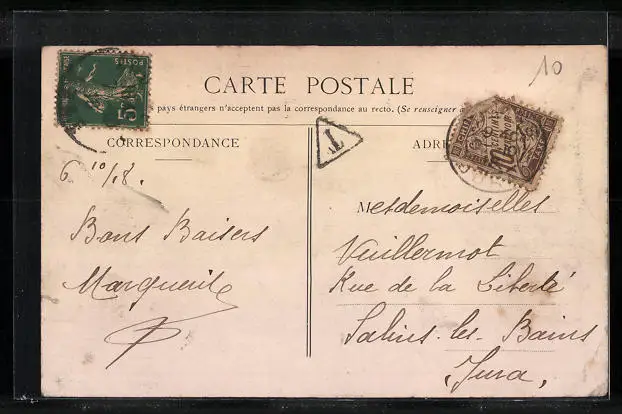 10
POSTES
5c
CARTE POSTALE
pays étrangers n'acceptent pas la correspondance au recto. (Se renseigner
CORRESPONDANCE
ADR
T
10
CENTIMES
6 10/18.
Bons Baisers
Marguerite
Mesdemoiselles
Vuillermot
Rue de la Liberté
Salins-les-Bains
Jura,